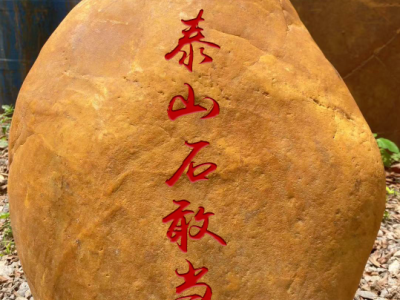 泰山石敢当